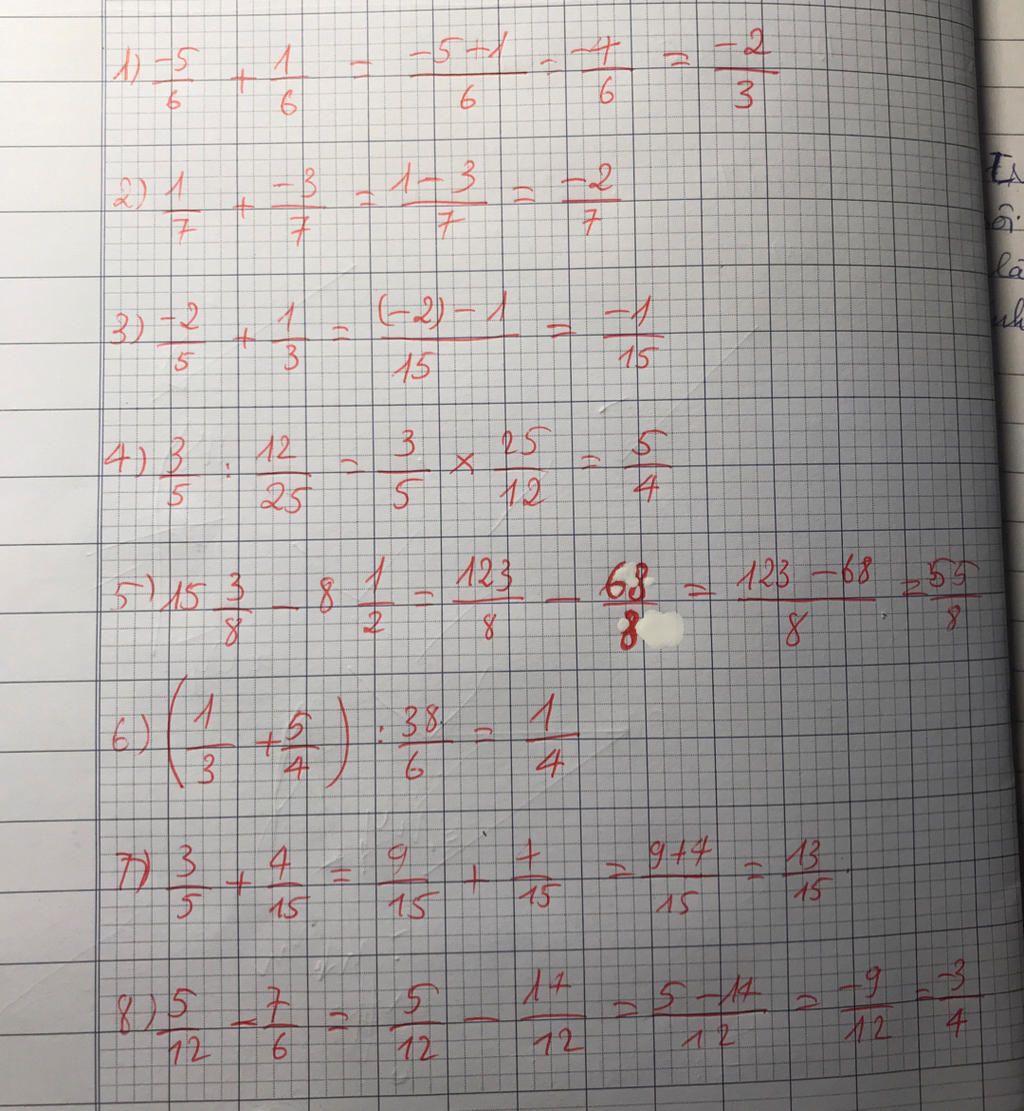 1) -5/6 + 1/6 = -5+1/6 = -4/6 = -2/3
2) 1/7 + -3/7 = 1-3/7 = -2/7
3) -2/5 + 1/3 = (-2)-1/15 = -1/15
4) 3/5 : 12/25 = 3/5 × 25/12 = 5/4
5) 15 3/8 - 8 1/2 = 123/8 - 68/8 = 123-68/8 = 55/8
6) (1/3 + 5/4) : 38/6 = 1/4
7) 3/5 + 4/15 = 9/15 + 4/15 = 9+4/15 = 13/15
8) 5/12 - 7/6 = 5/12 - 14/12 = 5-14/12 = -9/12 = -3/4